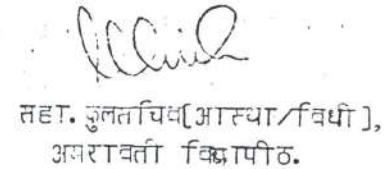 सहा. कुलसचिव[आस्था/विधी],
अमरावती विद्यापीठ.